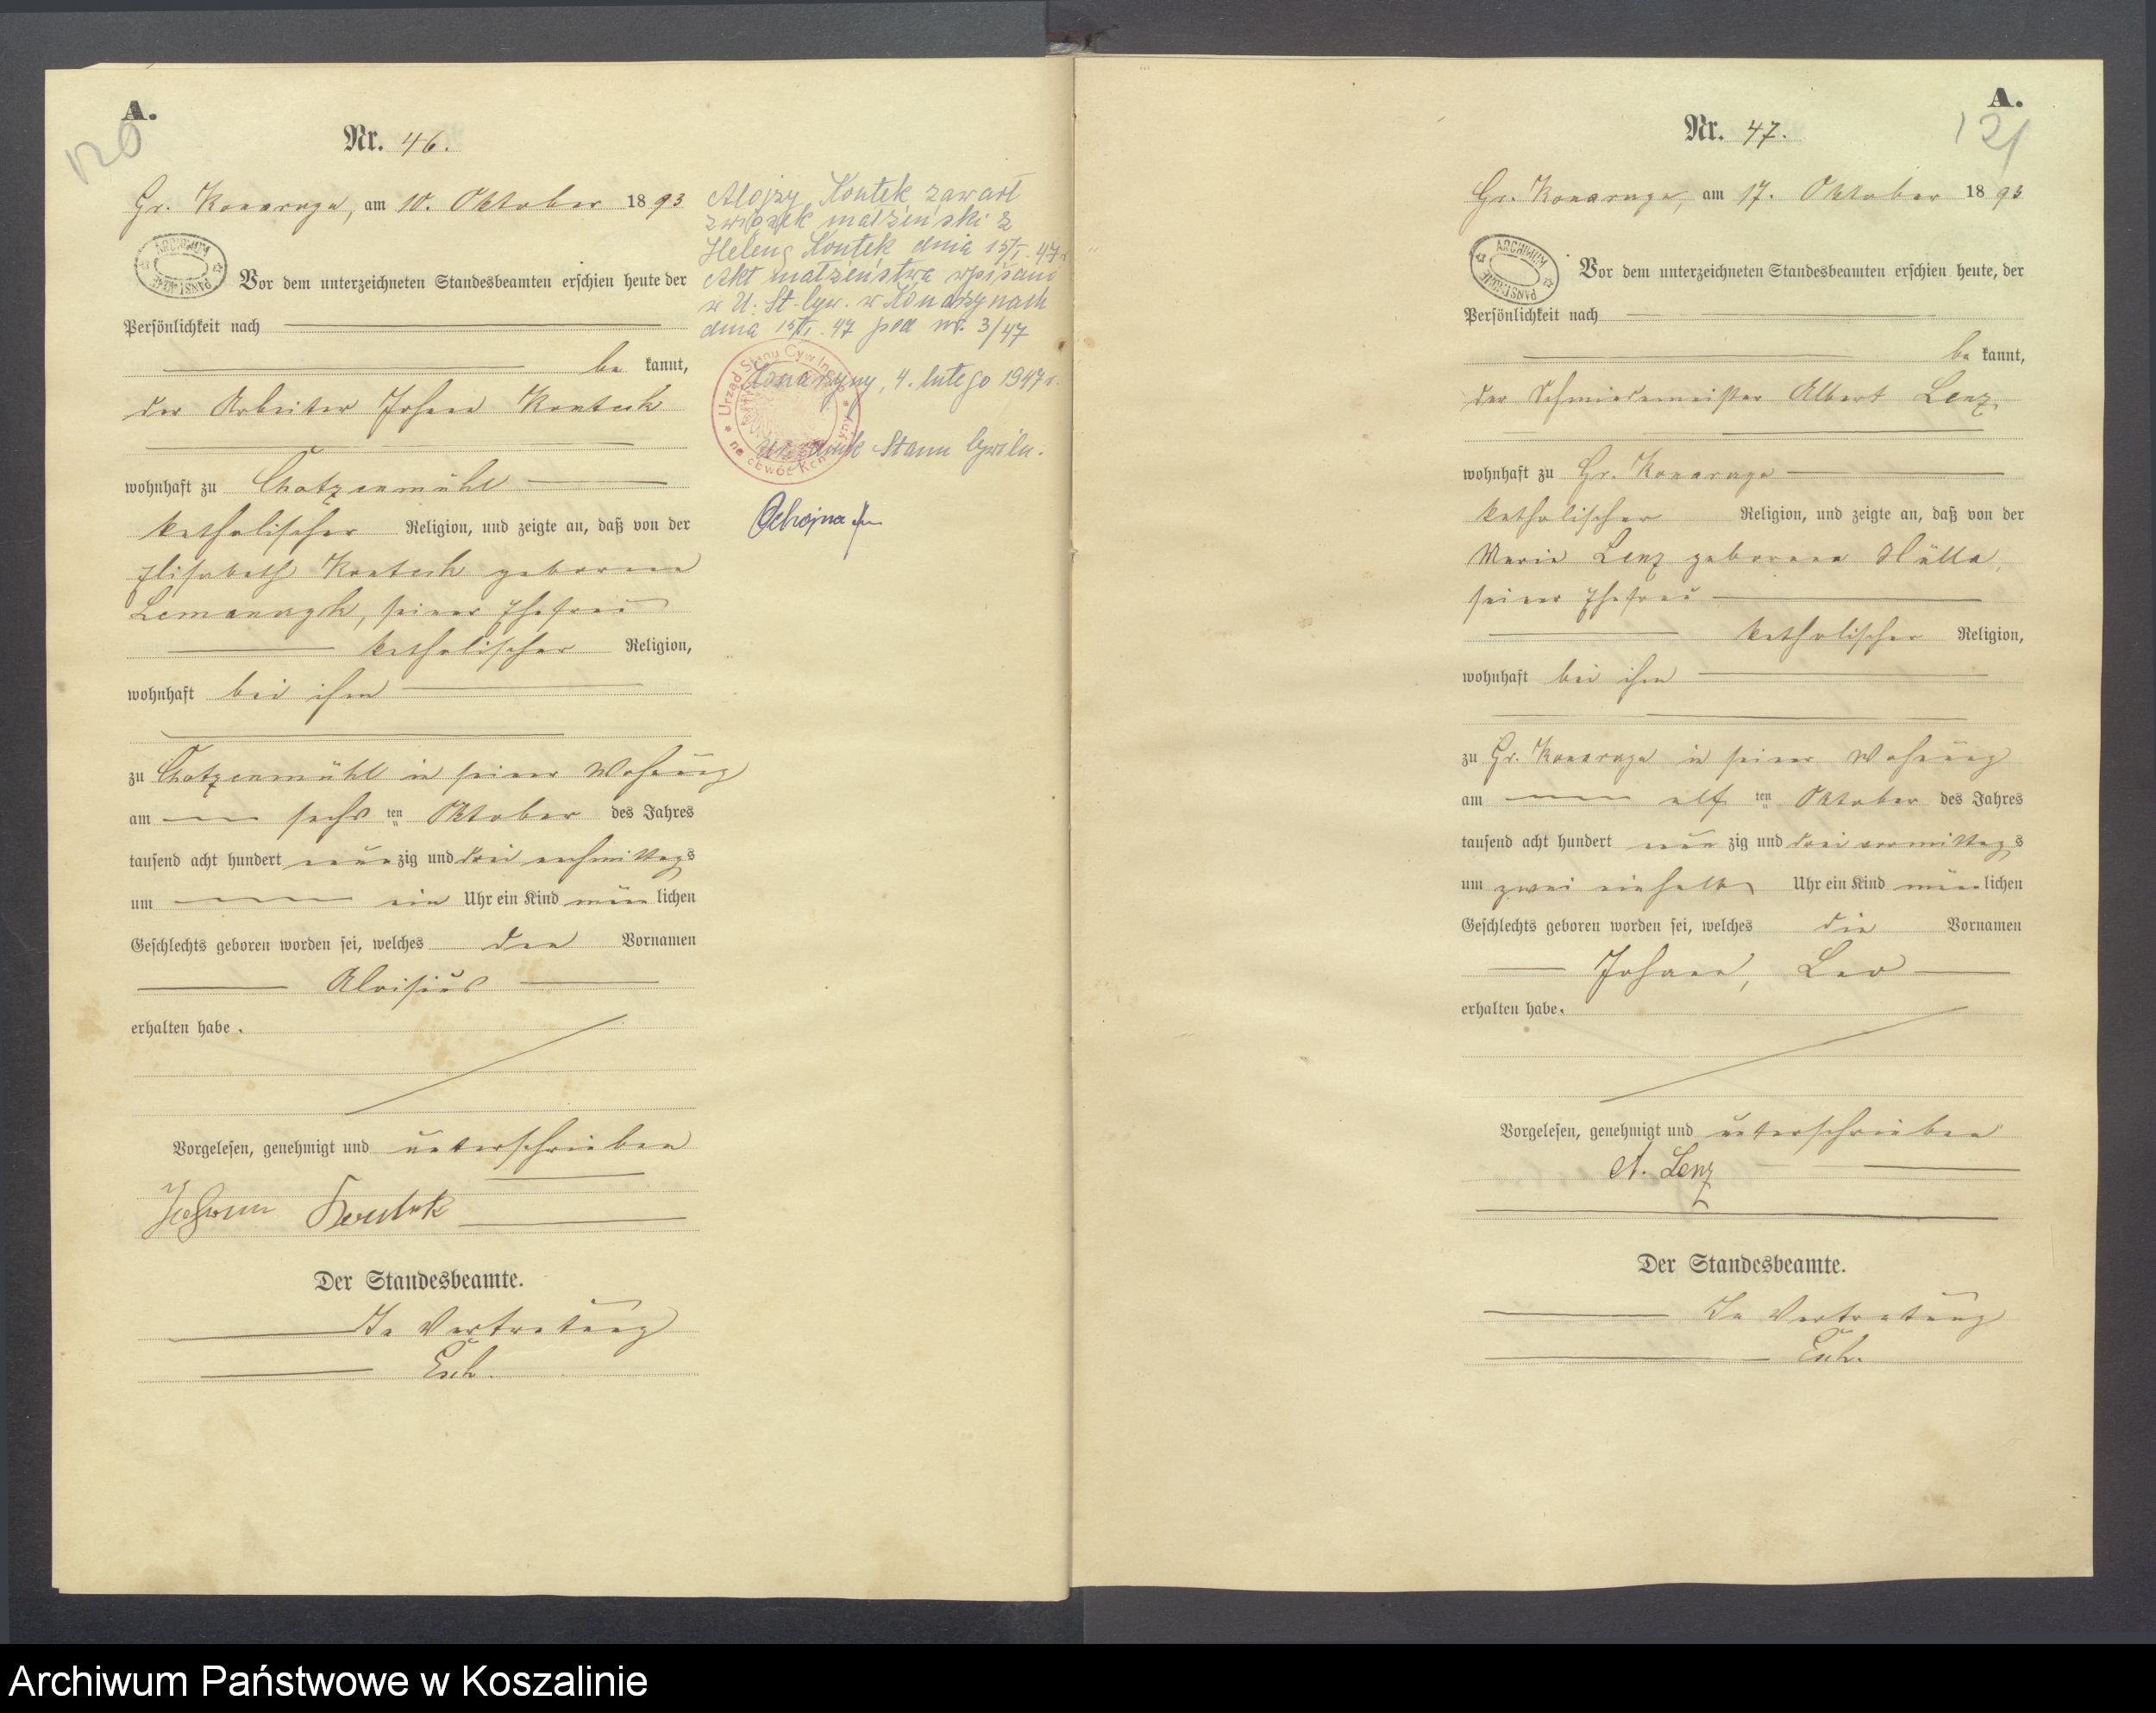 A.
120
Nr. 46.
Gr. Konarzyn, am 10. Oktober 1893
ARCHIWUM PAŃSTWOWE
Vor dem unterzeichneten Standesbeamten erschien heute der
Persönlichkeit nach
be kannt,
der Arbeiter Johann Kontek
wohnhaft zu Chotzenmühl
katholischer Religion, und zeigte an, daß von der
Elisabeth geborene
seiner Ehefrau
katholischer Religion,
wohnhaft bei ihm
zu Chotzenmühl in seiner Wohnung
am sechs ten Oktober des Jahres
tausend acht hundert neun zig und drei nachmittags
um ein Uhr ein Kind männ lichen
Geschlechts geboren worden sei, welches den Vornamen
Aloisius
erhalten habe.
Vorgelesen, genehmigt und unterschrieben
Johann Kontek
Der Standesbeamte.
In Vertretung
Esch.
Alojzy Kontek zawarł
związek małżeński z
Heleną Kontek dnia 15/I. 47 r
Akt małżeństwa wpisano
w U. St. Cyw. w Konarzynach
dnia 15/I. 47 pod nr. 3/47
Konarzyny, 4. lutego 1947 r.
Urząd Stanu Cywilnego
Urzędnik Stanu Cywiln.
A.
121
Nr. 47.
Gr. Konarzyn, am 17. Oktober 1893
ARCHIWUM PAŃSTWOWE
Vor dem unterzeichneten Standesbeamten erschien heute, der
Persönlichkeit nach
be kannt,
der Schmiedemeister Albert Lenz
wohnhaft zu Gr. Konarzyn
katholischer Religion, und zeigte an, daß von der
Maria Lenz geborenen
seiner Ehefrau
katholischer Religion,
wohnhaft bei ihm
zu Gr. Konarzyn in seiner Wohnung
am elf ten Oktober des Jahres
tausend acht hundert neun zig und drei vormittags
um zwei einhalb Uhr ein Kind männ lichen
Geschlechts geboren worden sei, welches die Vornamen
Johann, Leo
erhalten habe.
Vorgelesen, genehmigt und unterschrieben
A. Lenz
Der Standesbeamte.
In Vertretung
Esch.
Archiwum Państwowe w Koszalinie